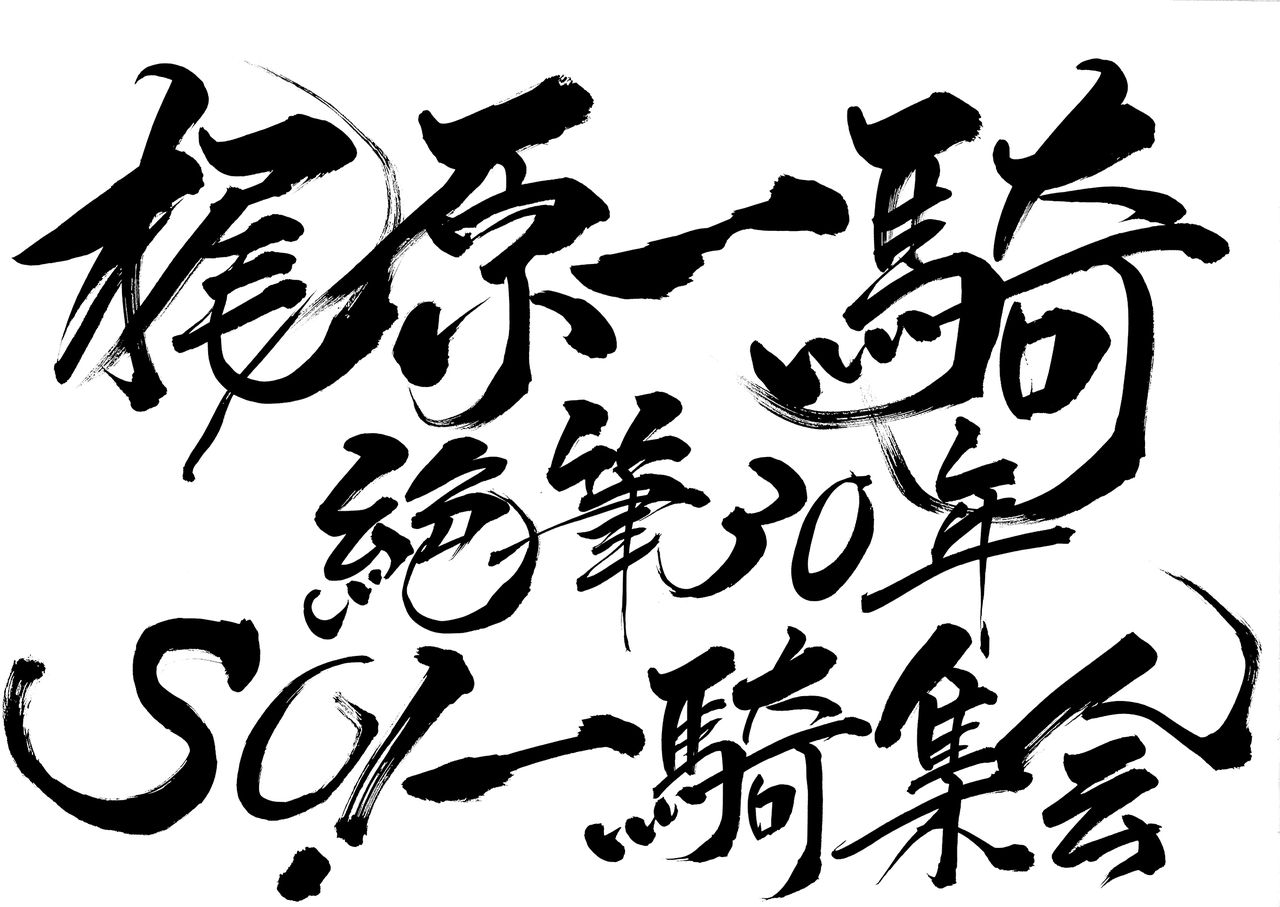 梶原一騎
絶筆30年
SO!一騎集会